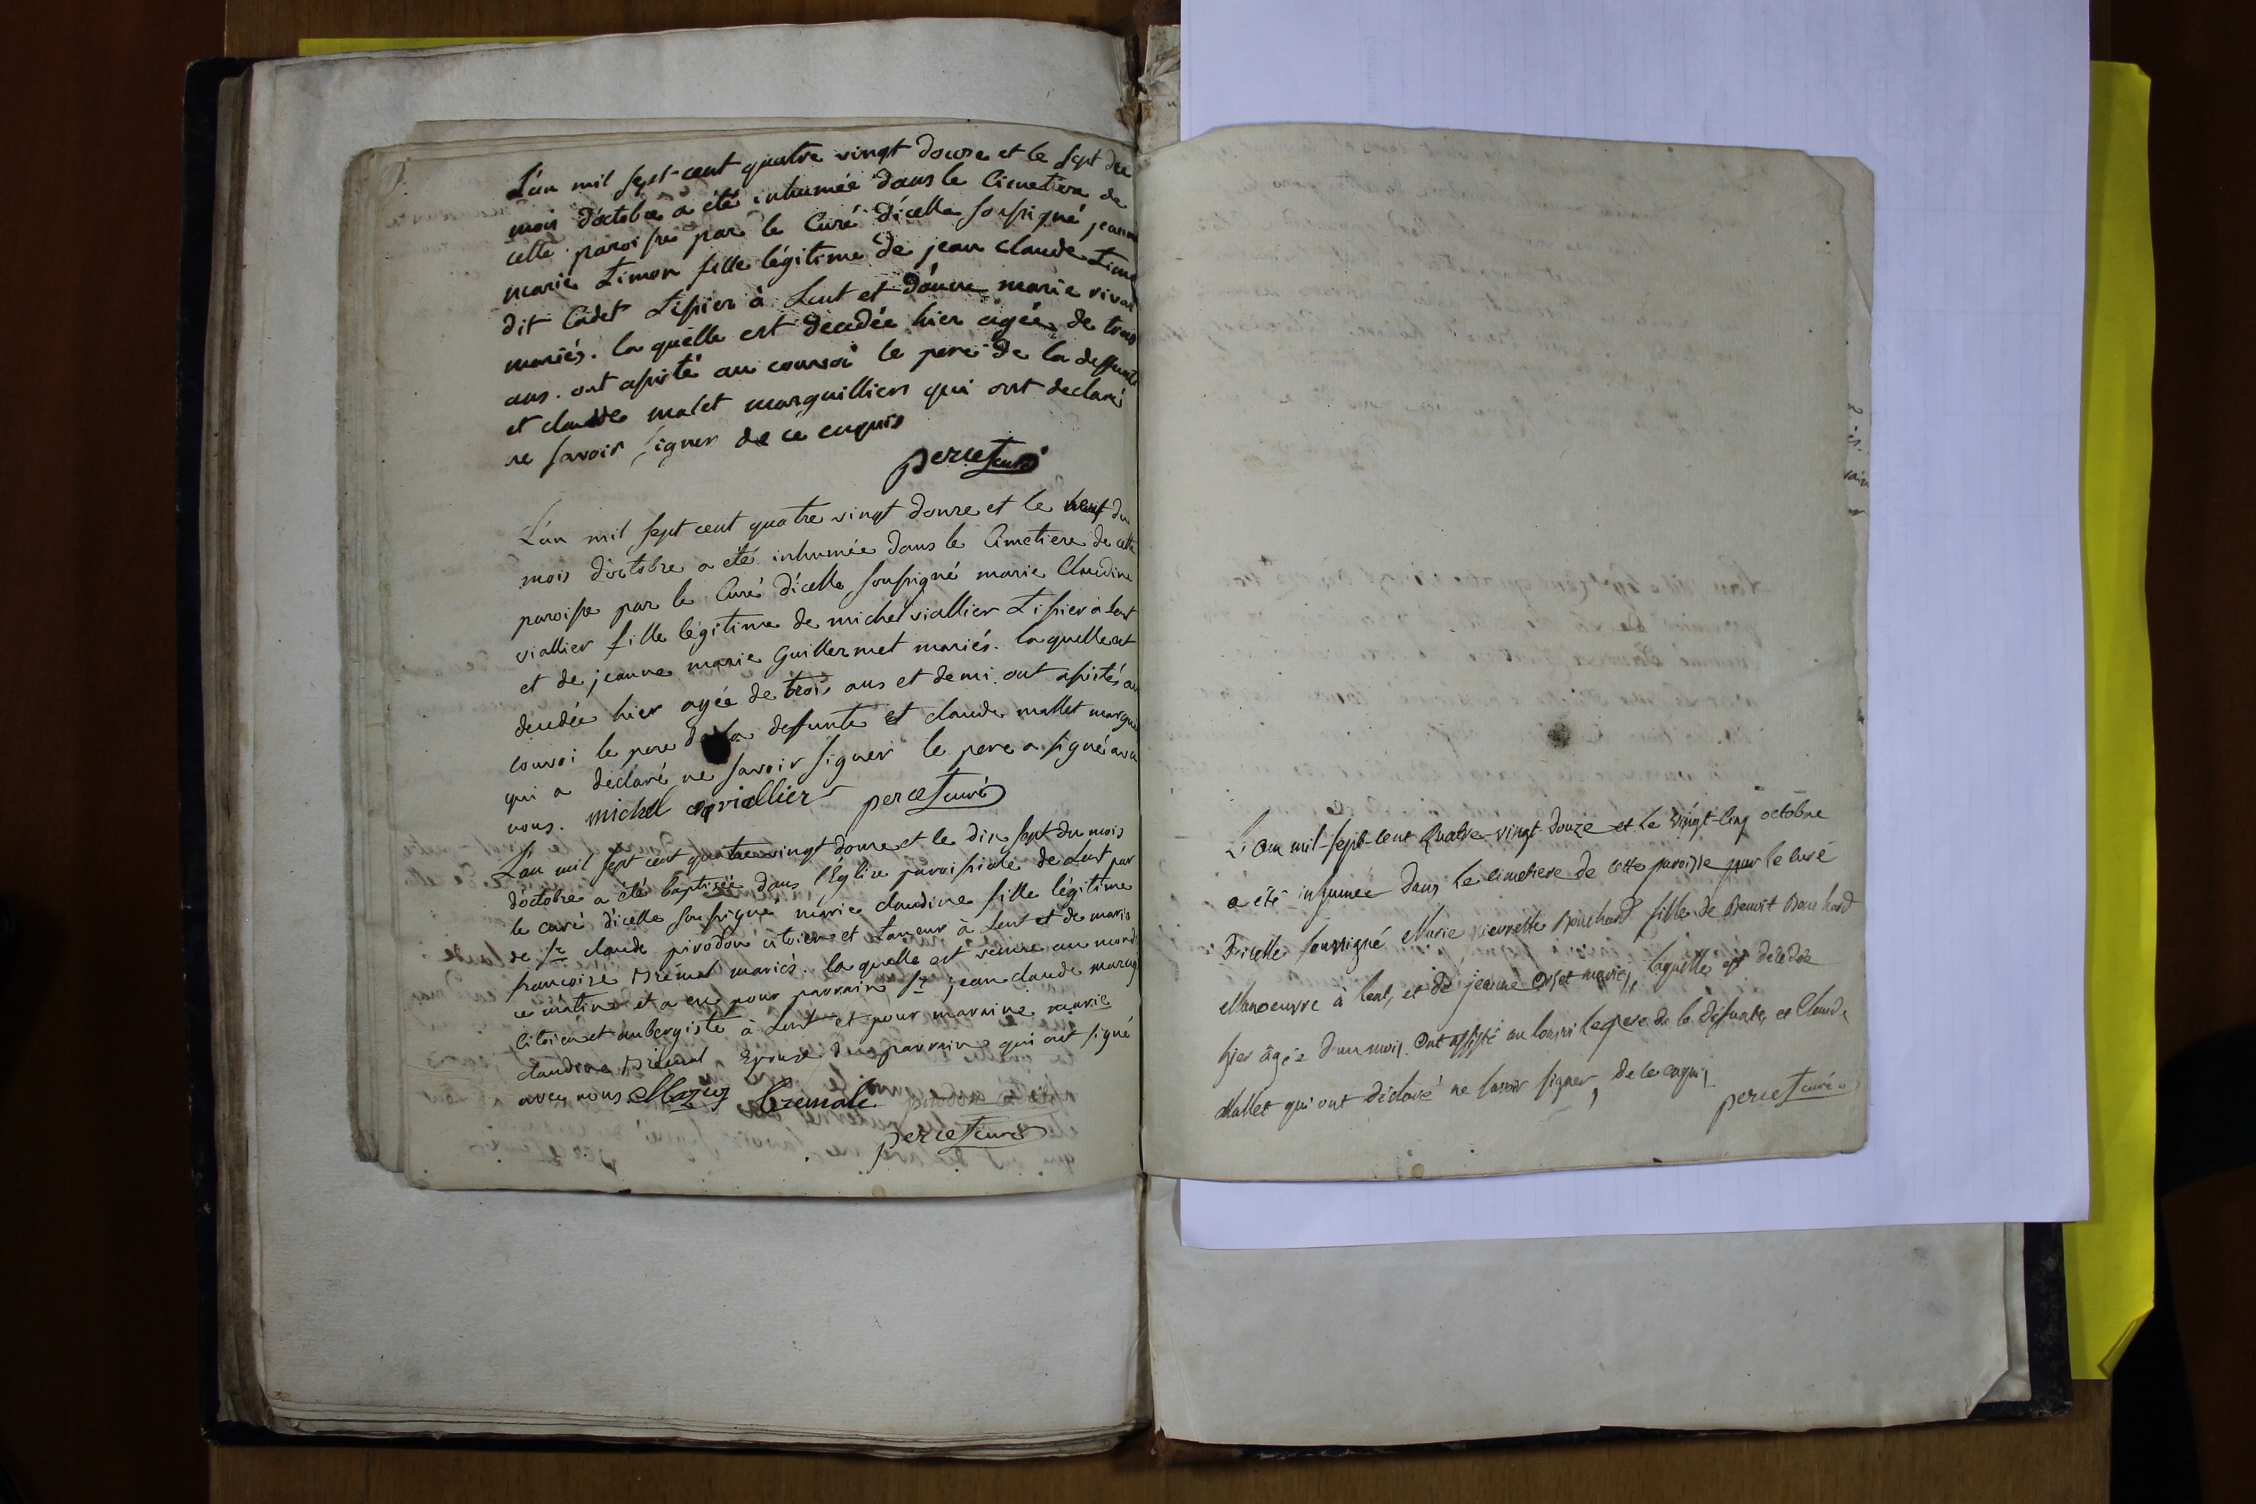 L'an mil sept-cent quatre vingt douze et le sept du
mois d'octobre a été inhumée dans le Cimetiere de
cette paroisse par le Curé d'icelle soussigné jeanne
marie Timon fille légitime de jean claude Timon
dit Cadet Tissier à Lent et d'anne marie vivan
mariés. la quelle est decedée hier agée de trois
ans. ont assisté au convoi le pere de la deffunte
et claude malet marguilliers qui ont declaré
ne savoir signer de ce enquis
percet curé
L'an mil sept cent quatre vingt douze et le neuf du
mois d'octobre a été inhumée dans le Cimetiere de cette
paroisse par le Curé d'icelle soussigné marie Claudine
viallier fille légitime de michel viallier Tissier a Lent
et de jeanne marie Guillermet mariés. la quelle est
decedée hier agée de trois ans et demi. ont assistés au
convoi le pere de la deffunte et claude mallet marguil
qui a déclaré ne savoir signer le pere a signé avec
nous. michel viallier percet curé
L'an mil sept cent quatre vingt douze et le dix sept du mois
d'octobre a été baptisée dans l'Église paroissiale de Lent par
le curé d'icelle soussigné marie claudine fille légitime
de sr claude pirodon citoien et Taneur à Lent et de marie
francoise Bremal mariés. la quelle est venue au monde
ce matin et a eu pour parrain sr jean claude mazuy
Citoien et aubergiste à Lent et pour maraine marie
claudine Bremal Epouse du parrain qui ont signé
avec nous Mazuy Bremale
percet curé
L'an mil-sept-cent Quatre-vingt-douze et le vingt-cinq octobre
a été inhumée dans le cimetiere de cette paroisse par le curé
d'icelle soussigné Marie pierrette Bouchard fille de Benoit Bouchard
Manoeuvre à Lent, et de jeanne Orset mariés, laquelle est décédée
hier âgée d'un mois. Ont assisté au convoi le pere de la défunte et Claude
Mallet qui ont déclaré ne savoir signer, de ce enquis
percet curé